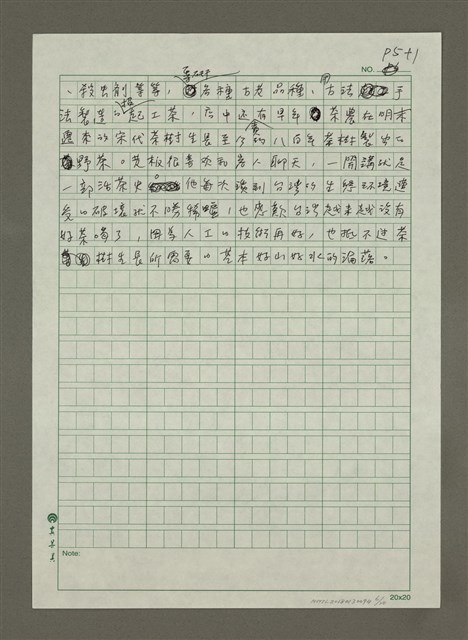 P5+1
NO.
、殺虫劑等等，各種古老品種，用古法手
法製造的起工茶，店中还有早年茶農在明末
遷來的宋代茶樹生長至今的八百年茶樹製出
野茶。老板很喜欢和客人聊天，一開講就是
一部活茶史。他每次談到台灣的生態环境遭
受的破壞就不勝，也感歎台灣越來越沒有
好茶喝了，因為人工的技術再好，也抵不过茶
樹生長所需要的基本好山好水的淪落。
Note:
20x20